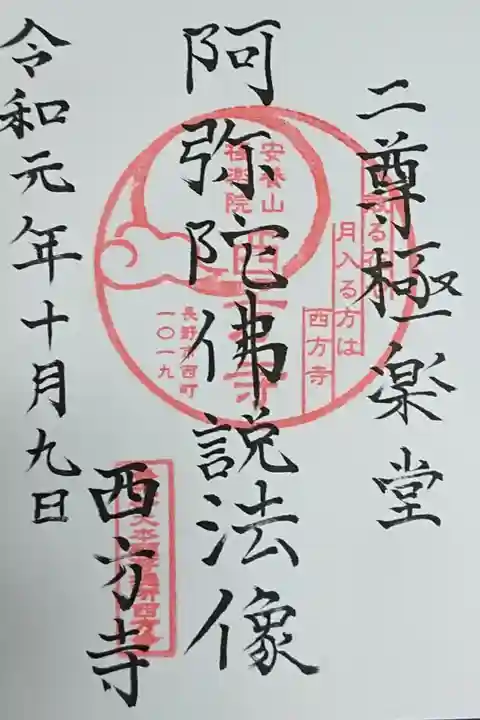 二尊極楽堂
阿弥陀佛説法像
令和元年十月九日
西方寺
安養山
極楽院
西方寺
月入る方は
西方寺
長野市西町
一〇一九